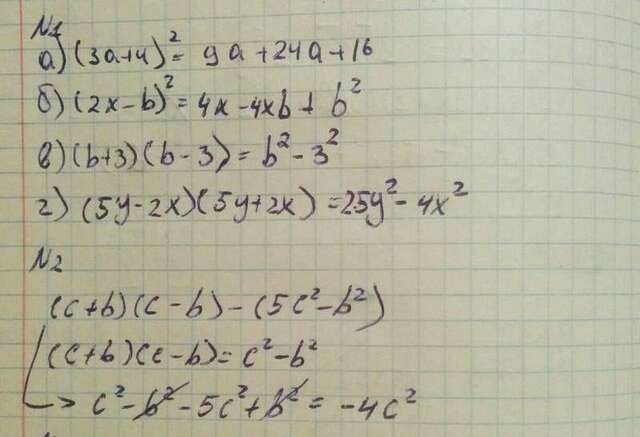 N1
а) (3a+4)² = 9a + 24a + 16
б) (2x-b)² = 4x - 4xb + b²
в) (b+3)(b-3) = b² - 3²
г) (5y-2x)(5y+2x) = 25y² - 4x²
N2
(c+b)(c-b) - (5c²-b²)
(c+b)(c-b) = c² - b²
→ c² - b² - 5c² + b² = -4c²